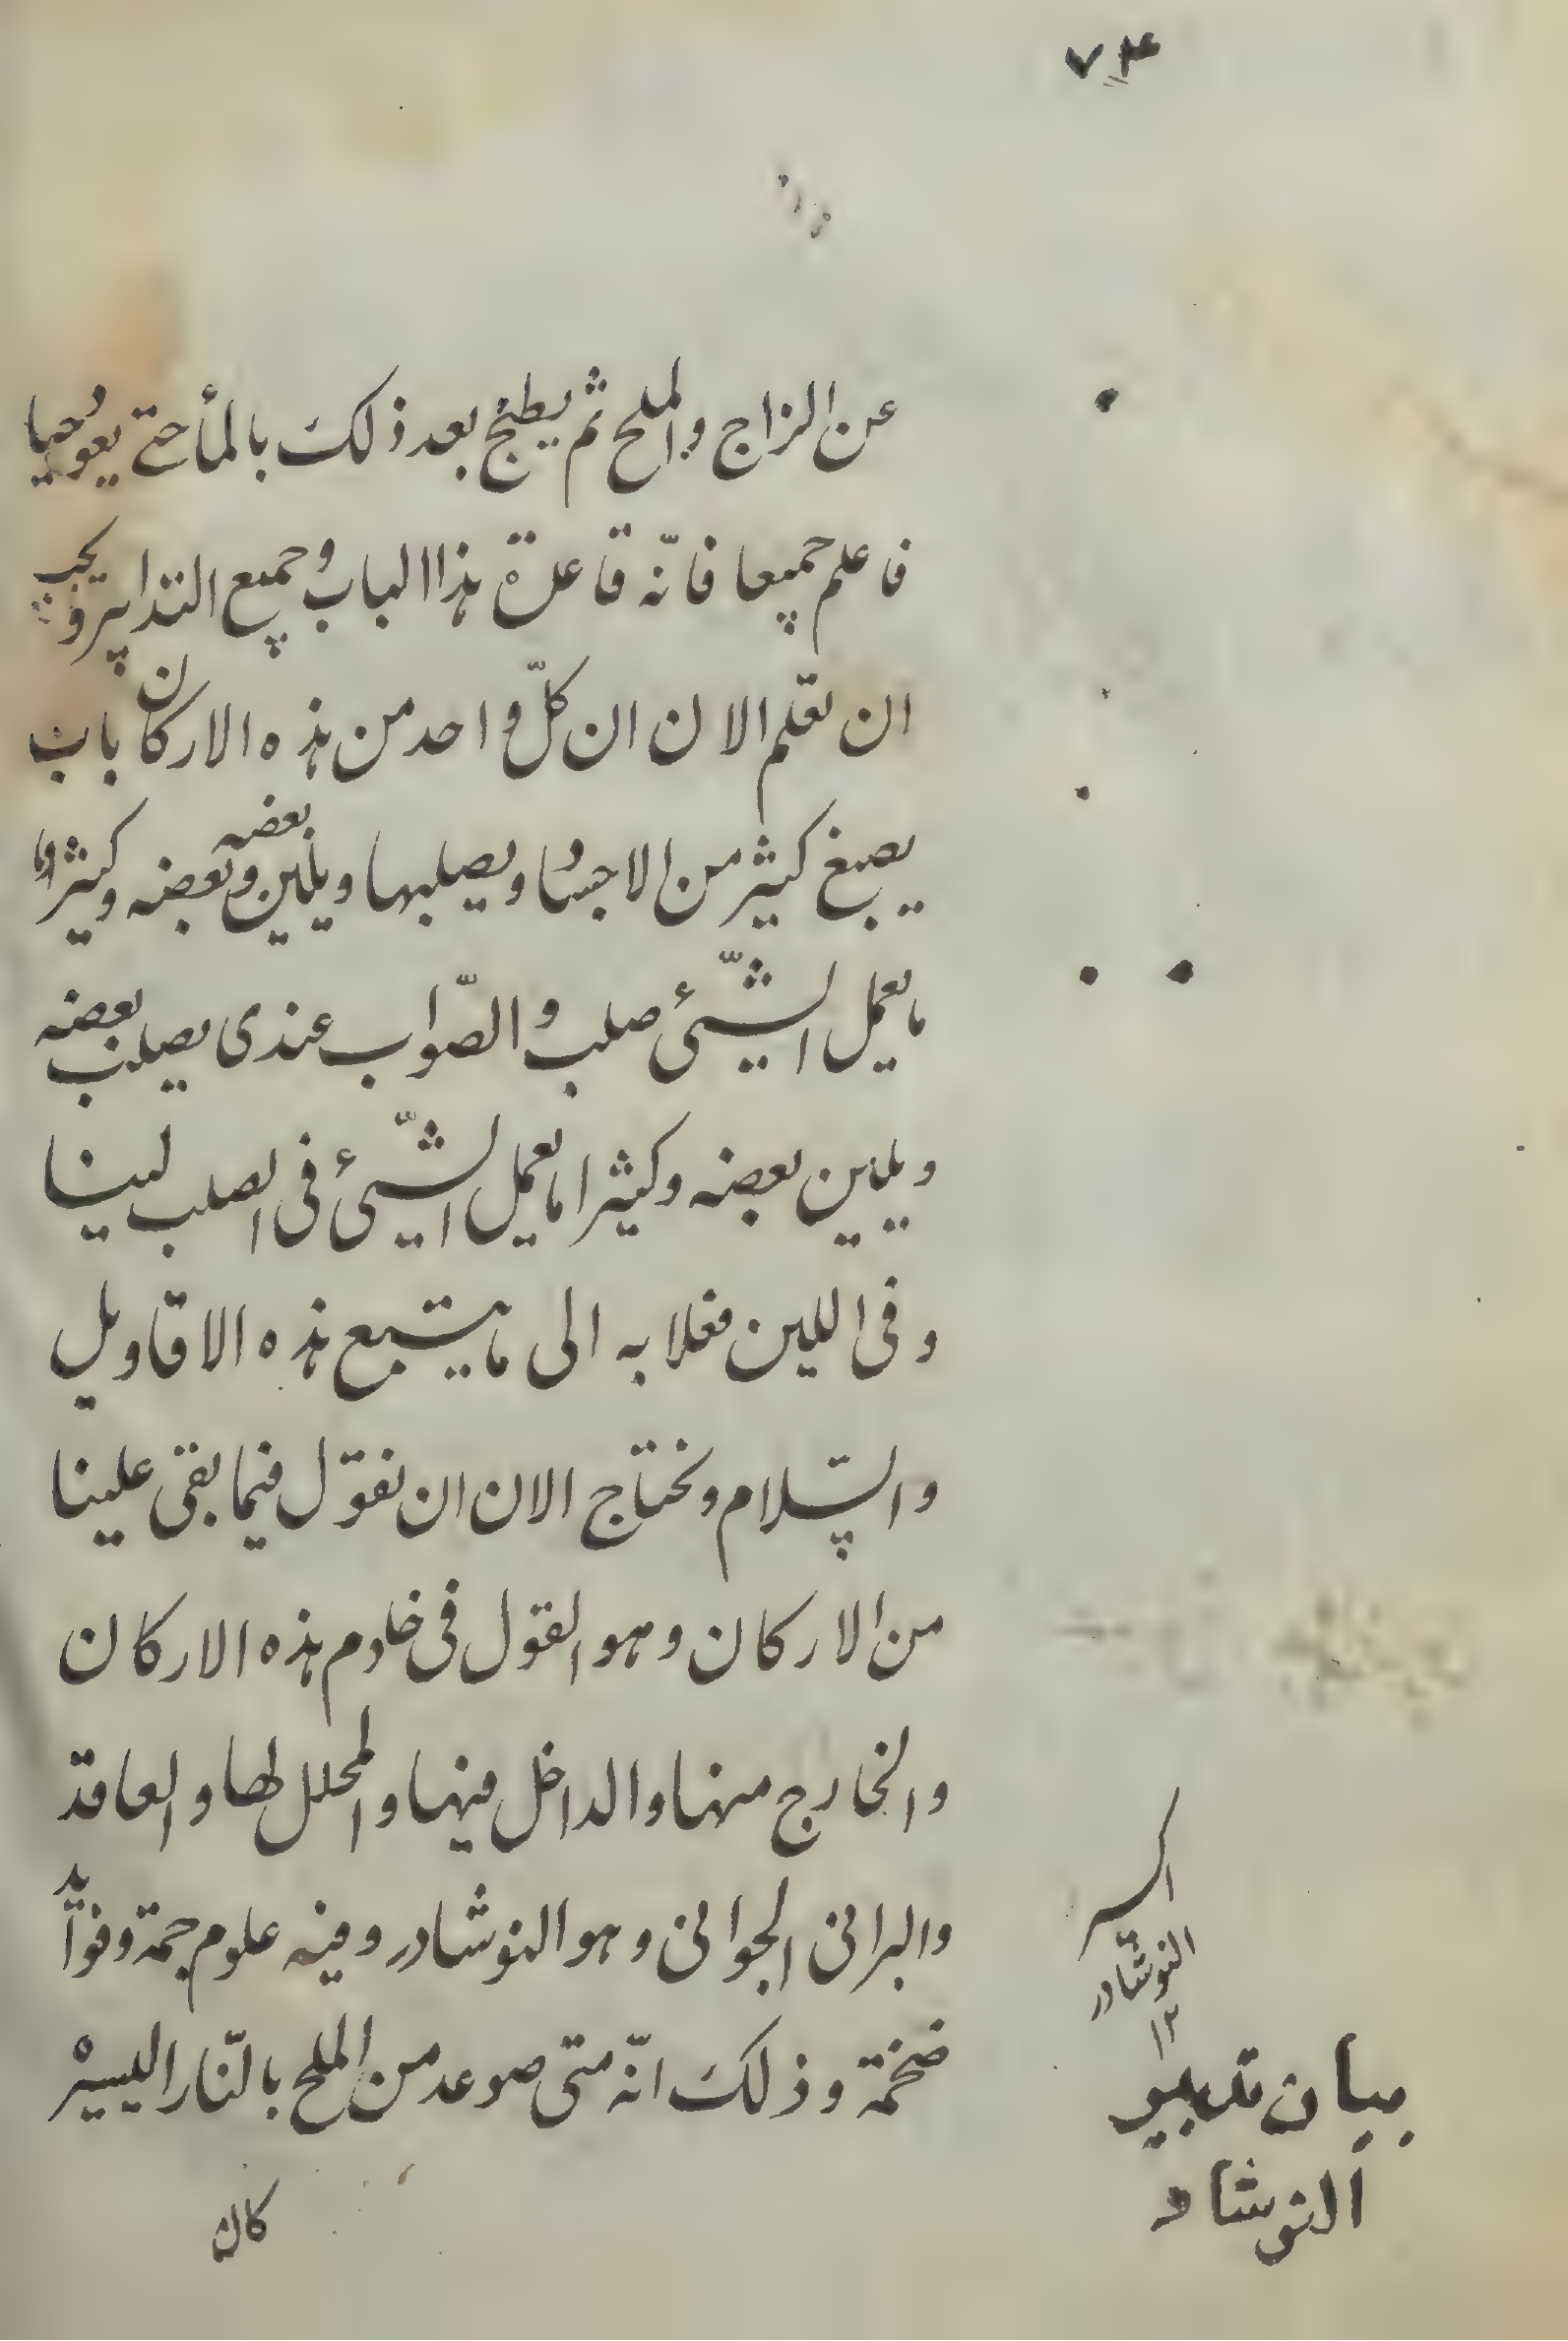 ٧٤
عن الزاج والملح ثم يطبخ بعد ذلك بالمأ حتے يعود حيا
فاعلم جميعا فانّه قاعدة هذا الباب وجميع التدابير ويجب
ان تعلم الان ان كلّ واحد من هذه الاركان باب
يصبغ كثير من الاجساد ويصلبها ويلين بعضه وبعضه وكثيرا ما
ما يعمل الشّيئ صلب والصّواب عندى يصلب بعضه
ويلين بعضه وكثيرا ما يعمل الشّيئ فى الصلب لينا
وفى اللين فعلا به الى ما يتبع هذه الاقاويل
والسّلام ونحتاج الان ان نقول فيما بقى علينا
من الاركان وهو القول فى خادم هذه الاركان
والخارج منها والداخل فيها والمحلل لها والعاقد
والبرانى الجوانى وهو النوشادر وفيه علوم جمة وفوائد
ضخمة وذلك انّه متى صوعد من الملح بالنّار اليسير
كان
النوشادر
١٢
بيان تدبير
النوشاد